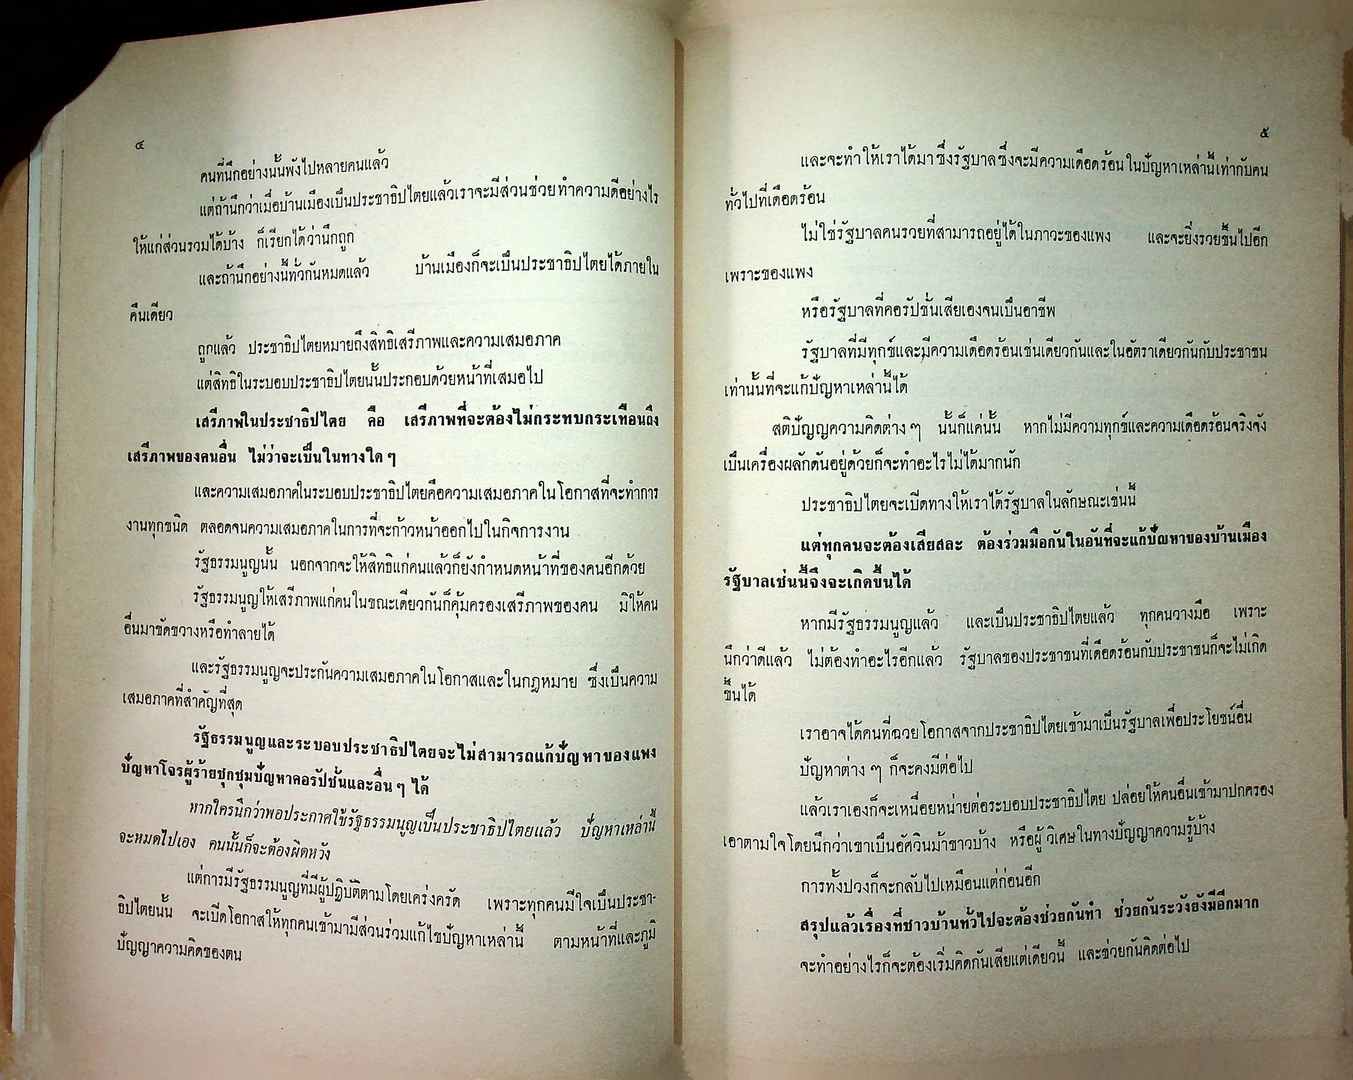 ๔
คนที่นึกอย่างนั้นพังไปหลายคนแล้ว
แต่ถ้านึกว่าเมื่อบ้านเมืองเป็นประชาธิปไตยแล้วเราจะมีส่วนช่วยทำความดีอย่างไร
ให้แก่ส่วนรวมได้บ้าง ก็เรียกได้ว่านึกถูก
และถ้านึกอย่างนี้ทั่วกันหมดแล้ว บ้านเมืองก็จะเป็นประชาธิปไตยได้ภายใน
คืนเดียว
ถูกแล้ว ประชาธิปไตยหมายถึงสิทธิเสรีภาพและความเสมอภาค
แต่สิทธิในระบอบประชาธิปไตยนั้นประกอบด้วยหน้าที่เสมอไป
เสรีภาพในประชาธิปไตย คือ เสรีภาพที่จะต้องไม่กระทบกระเทือนถึง
เสรีภาพของคนอื่น ไม่ว่าจะเป็นในทางใด ๆ
และความเสมอภาคในระบอบประชาธิปไตยคือความเสมอภาคในโอกาสที่จะทำการ
งานทุกชนิด ตลอดจนความเสมอภาคในการที่จะก้าวหน้าออกไปในกิจการงาน
รัฐธรรมนูญนั้น นอกจากจะให้สิทธิแก่คนแล้วก็ยังกำหนดหน้าที่ของคนอีกด้วย
รัฐธรรมนูญให้เสรีภาพแก่คนในขณะเดียวกันก็คุ้มครองเสรีภาพของคน มิให้คน
อื่นมาขัดขวางหรือทำลายได้
และรัฐธรรมนูญจะประกันความเสมอภาคในโอกาสและในกฎหมาย ซึ่งเป็นความ
เสมอภาคที่สำคัญที่สุด
รัฐธรรมนูญและระบอบประชาธิปไตยจะไม่สามารถแก้ปัญหาของแพง
ปัญหาโจรผู้ร้ายชุกชุมปัญหาคอรัปชั่นและอื่น ๆ ได้
หากใครนึกว่าพอประกาศใช้รัฐธรรมนูญเป็นประชาธิปไตยแล้ว ปัญหาเหล่านี้
จะหมดไปเอง คนนั้นก็จะต้องผิดหวัง
แต่การมีรัฐธรรมนูญที่มีผู้ปฏิบัติตามโดยเคร่งครัด เพราะทุกคนมีใจเป็นประชา-
ธิปไตยนั้น จะเปิดโอกาสให้ทุกคนเข้ามามีส่วนร่วมแก้ไขปัญหาเหล่านี้ ตามหน้าที่และภูมิ
ปัญญาความคิดของตน
๕
และจะทำให้เราได้มาซึ่งรัฐบาลซึ่งจะมีความเดือดร้อนในปัญหาเหล่านี้เท่ากับคน
ทั่วไปที่เดือดร้อน
ไม่ใช่รัฐบาลคนรวยที่สามารถอยู่ได้ในภาวะของแพง และจะยิ่งรวยขึ้นไปอีก
เพราะของแพง
หรือรัฐบาลที่คอรัปชั่นเสียเองจนเป็นอาชีพ
รัฐบาลที่มีทุกข์และมีความเดือดร้อนเช่นเดียวกันและในอัตราเดียวกันกับประชาชน
เท่านั้นที่จะแก้ปัญหาเหล่านี้ได้
สติปัญญความคิดต่าง ๆ นั้นก็แค่นั้น หากไม่มีความทุกข์และความเดือดร้อนจริงจัง
เป็นเครื่องผลักดันอยู่ด้วยก็จะทำอะไรไม่ได้มากนัก
ประชาธิปไตยจะเปิดทางให้เราได้รัฐบาลในลักษณะเช่นนี้
แต่ทุกคนจะต้องเสียสละ ต้องร่วมมือกันในอันที่จะแก้ปัญหาของบ้านเมือง
รัฐบาลเช่นนี้จึงจะเกิดขึ้นได้
หากมีรัฐธรรมนูญแล้ว และเป็นประชาธิปไตยแล้ว ทุกคนวางมือ เพราะ
นึกว่าดีแล้ว ไม่ต้องทำอะไรอีกแล้ว รัฐบาลของประชาชนที่เดือดร้อนกับประชาชนก็จะไม่เกิด
ขึ้นได้
เราอาจได้คนที่ฉวยโอกาสจากประชาธิปไตยเข้ามาเป็นรัฐบาลเพื่อประโยชน์อื่น
ปัญหาต่าง ๆ ก็จะคงมีต่อไป
แล้วเราเองก็จะเหนื่อยหน่ายต่อระบอบประชาธิปไตย ปล่อยให้คนอื่นเข้ามาปกครอง
เอาตามใจโดยนึกว่าเขาเป็นอัศวินม้าขาวบ้าง หรือผู้วิเศษในทางปัญญาความรู้บ้าง
การทั้งปวงก็จะกลับไปเหมือนแต่ก่อนอีก
สรุปแล้วเรื่องที่ชาวบ้านทั่วไปจะต้องช่วยกันทำ ช่วยกันระวังยังมีอีกมาก
จะทำอย่างไรก็จะต้องเริ่มคิดกันเสียแต่เดี๋ยวนี้ และช่วยกันคิดต่อไป